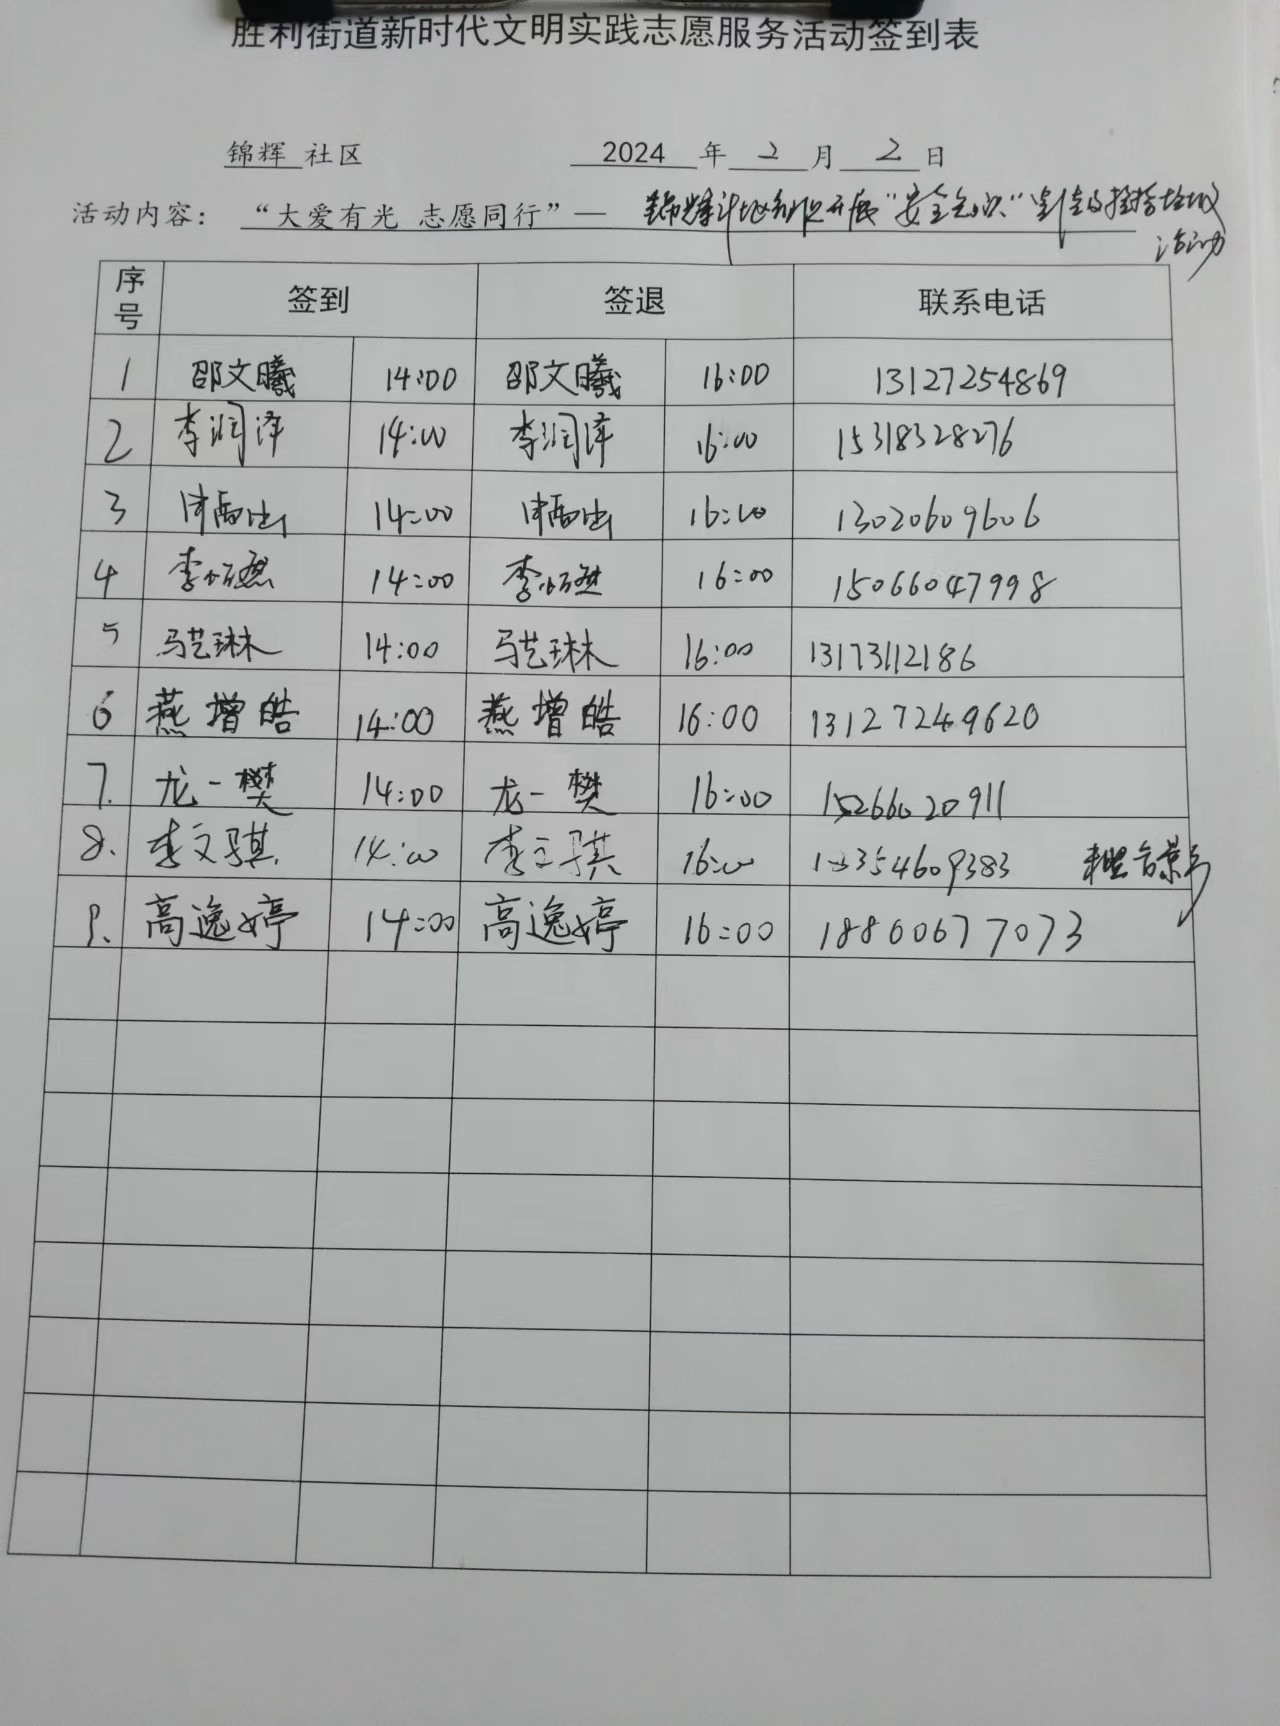 胜利街道新时代文明实践志愿服务活动签到表
锦辉 社区 2024 年 2 月 2 日
活动内容： “大爱有光 志愿同行”— 锦辉社区 开展“安全知识”宣传及捡拾垃圾
活动
序号 签到 签退 联系电话
1 邵文曦 14:00 邵文曦 16:00 13127254869
2 李润泽 14:00 李润泽 16:00 15318328276
3 14:00 16:00 13020609606
4 李 14:00 李 16:00 15066047998
5 马艺琳 14:00 马艺琳 16:00 13173112186
6 燕增皓 14:00 燕增皓 16:00 13127249620
7. 龙一樊 14:00 龙一樊 16:00 15266020911
8. 李文骐 14:00 李文骐 16:00 13354609383
9. 高逸婷 14:00 高逸婷 16:00 18860677073